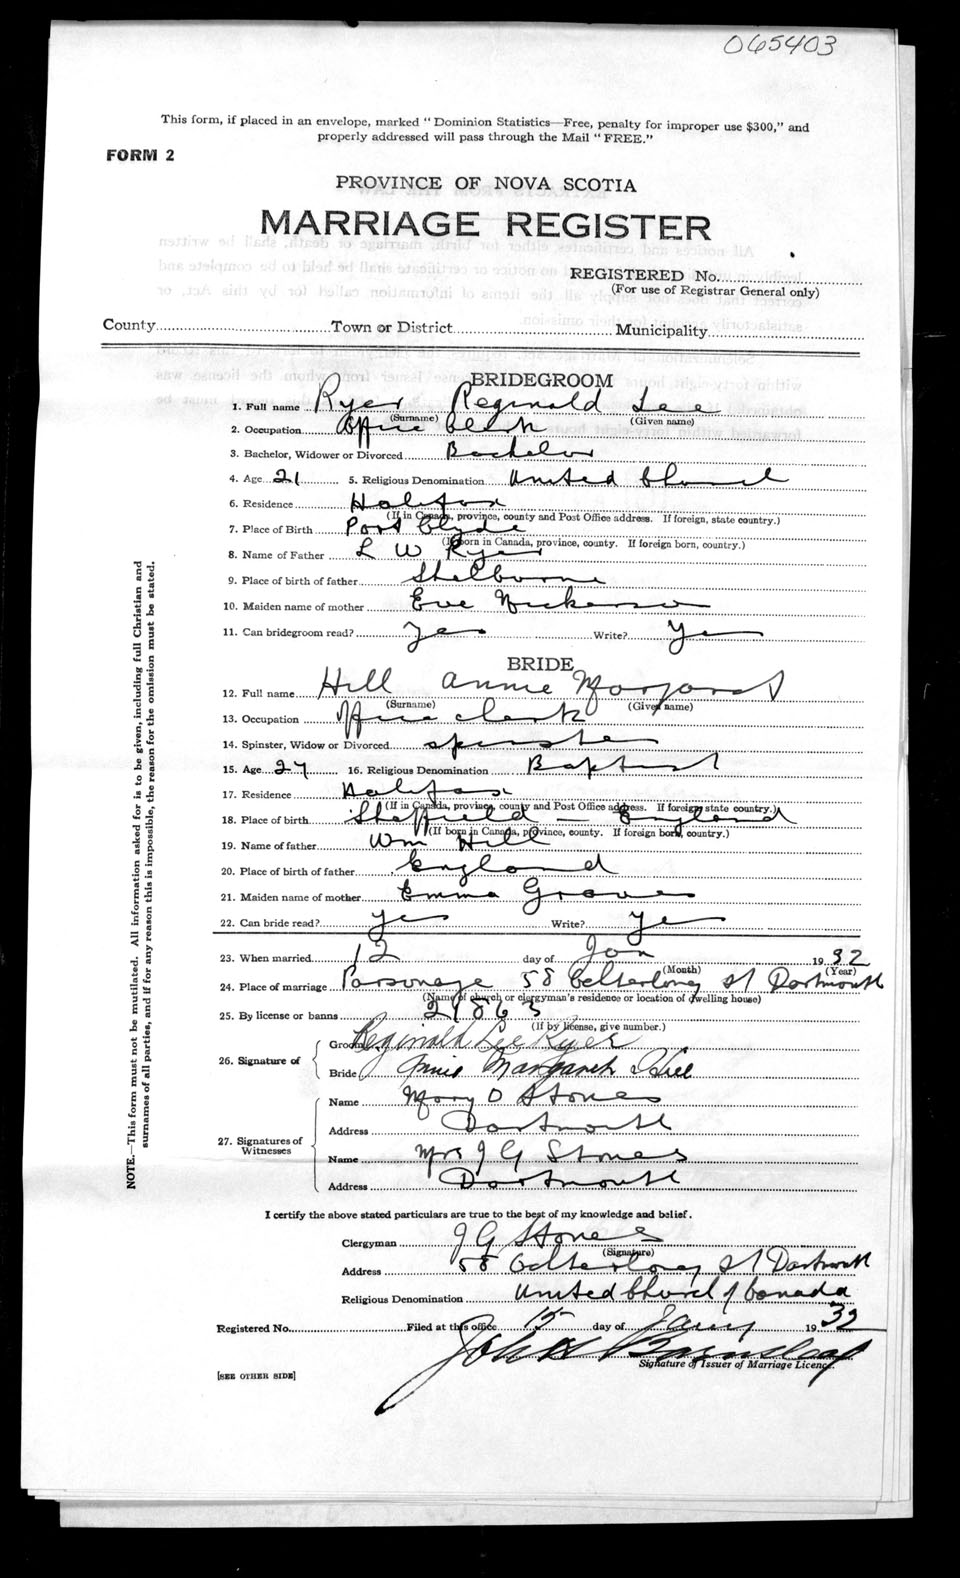 065403
This form, if placed in an envelope, marked "Dominion Statistics—Free, penalty for improper use $300," and
properly addressed will pass through the Mail "FREE."
FORM 2
PROVINCE OF NOVA SCOTIA
MARRIAGE REGISTER
REGISTERED No.
(For use of Registrar General only)
County Town or District Municipality
BRIDEGROOM
1. Full name Ryer Reginald Lee
(Surname) (Given name)
2. Occupation Office Clerk
3. Bachelor, Widower or Divorced Bachelor
4. Age 21 5. Religious Denomination United Church
6. Residence Halifax
(If in Canada, province, county and Post Office address. If foreign, state country.)
7. Place of Birth Port Clyde
(If born in Canada, province, county. If foreign born, country.)
8. Name of Father L W Ryer
9. Place of birth of father Shelburne
10. Maiden name of mother Eve Nickerson
11. Can bridegroom read? Yes Write? Yes
BRIDE
12. Full name Hill Annie Margaret
(Surname) (Given name)
13. Occupation Office clerk
14. Spinster, Widow or Divorced spinster
15. Age 27 16. Religious Denomination Baptist
17. Residence Halifax
(If in Canada, province, county and Post Office address. If foreign state country.)
18. Place of birth Sheffield - England
(If born in Canada, province, county. If foreign born, country.)
19. Name of father Wm Hill
20. Place of birth of father England
21. Maiden name of mother Emma Groves
22. Can bride read? yes Write? Yes
23. When married 12 day of Jan 1932
(Month) (Year)
24. Place of marriage Parsonage 58 St Dartmouth
(Name of church or clergyman's residence or location of dwelling house)
25. By license or banns 21863
(If by license, give number.)
26. Signature of
Groom Reginald Lee Ryer
Bride Annie Margaret Hill
27. Signatures of
Witnesses
Name Mary O Stones
Address Dartmouth
Name Mrs J G Stones
Address Dartmouth
I certify the above stated particulars are true to the best of my knowledge and belief.
Clergyman J G Stones
(Signature)
Address 58 St Dartmouth
Religious Denomination United Church of Canada
Registered No. Filed at this office 15 day of Jany 1932
John
Signature of Issuer of Marriage Licence.
[SEE OTHER SIDE]
NOTE.—This form must not be mutilated. All information asked for is to be given, including full Christian and
surnames of all parties, and if for any reason this is impossible, the reason for the omission must be stated.